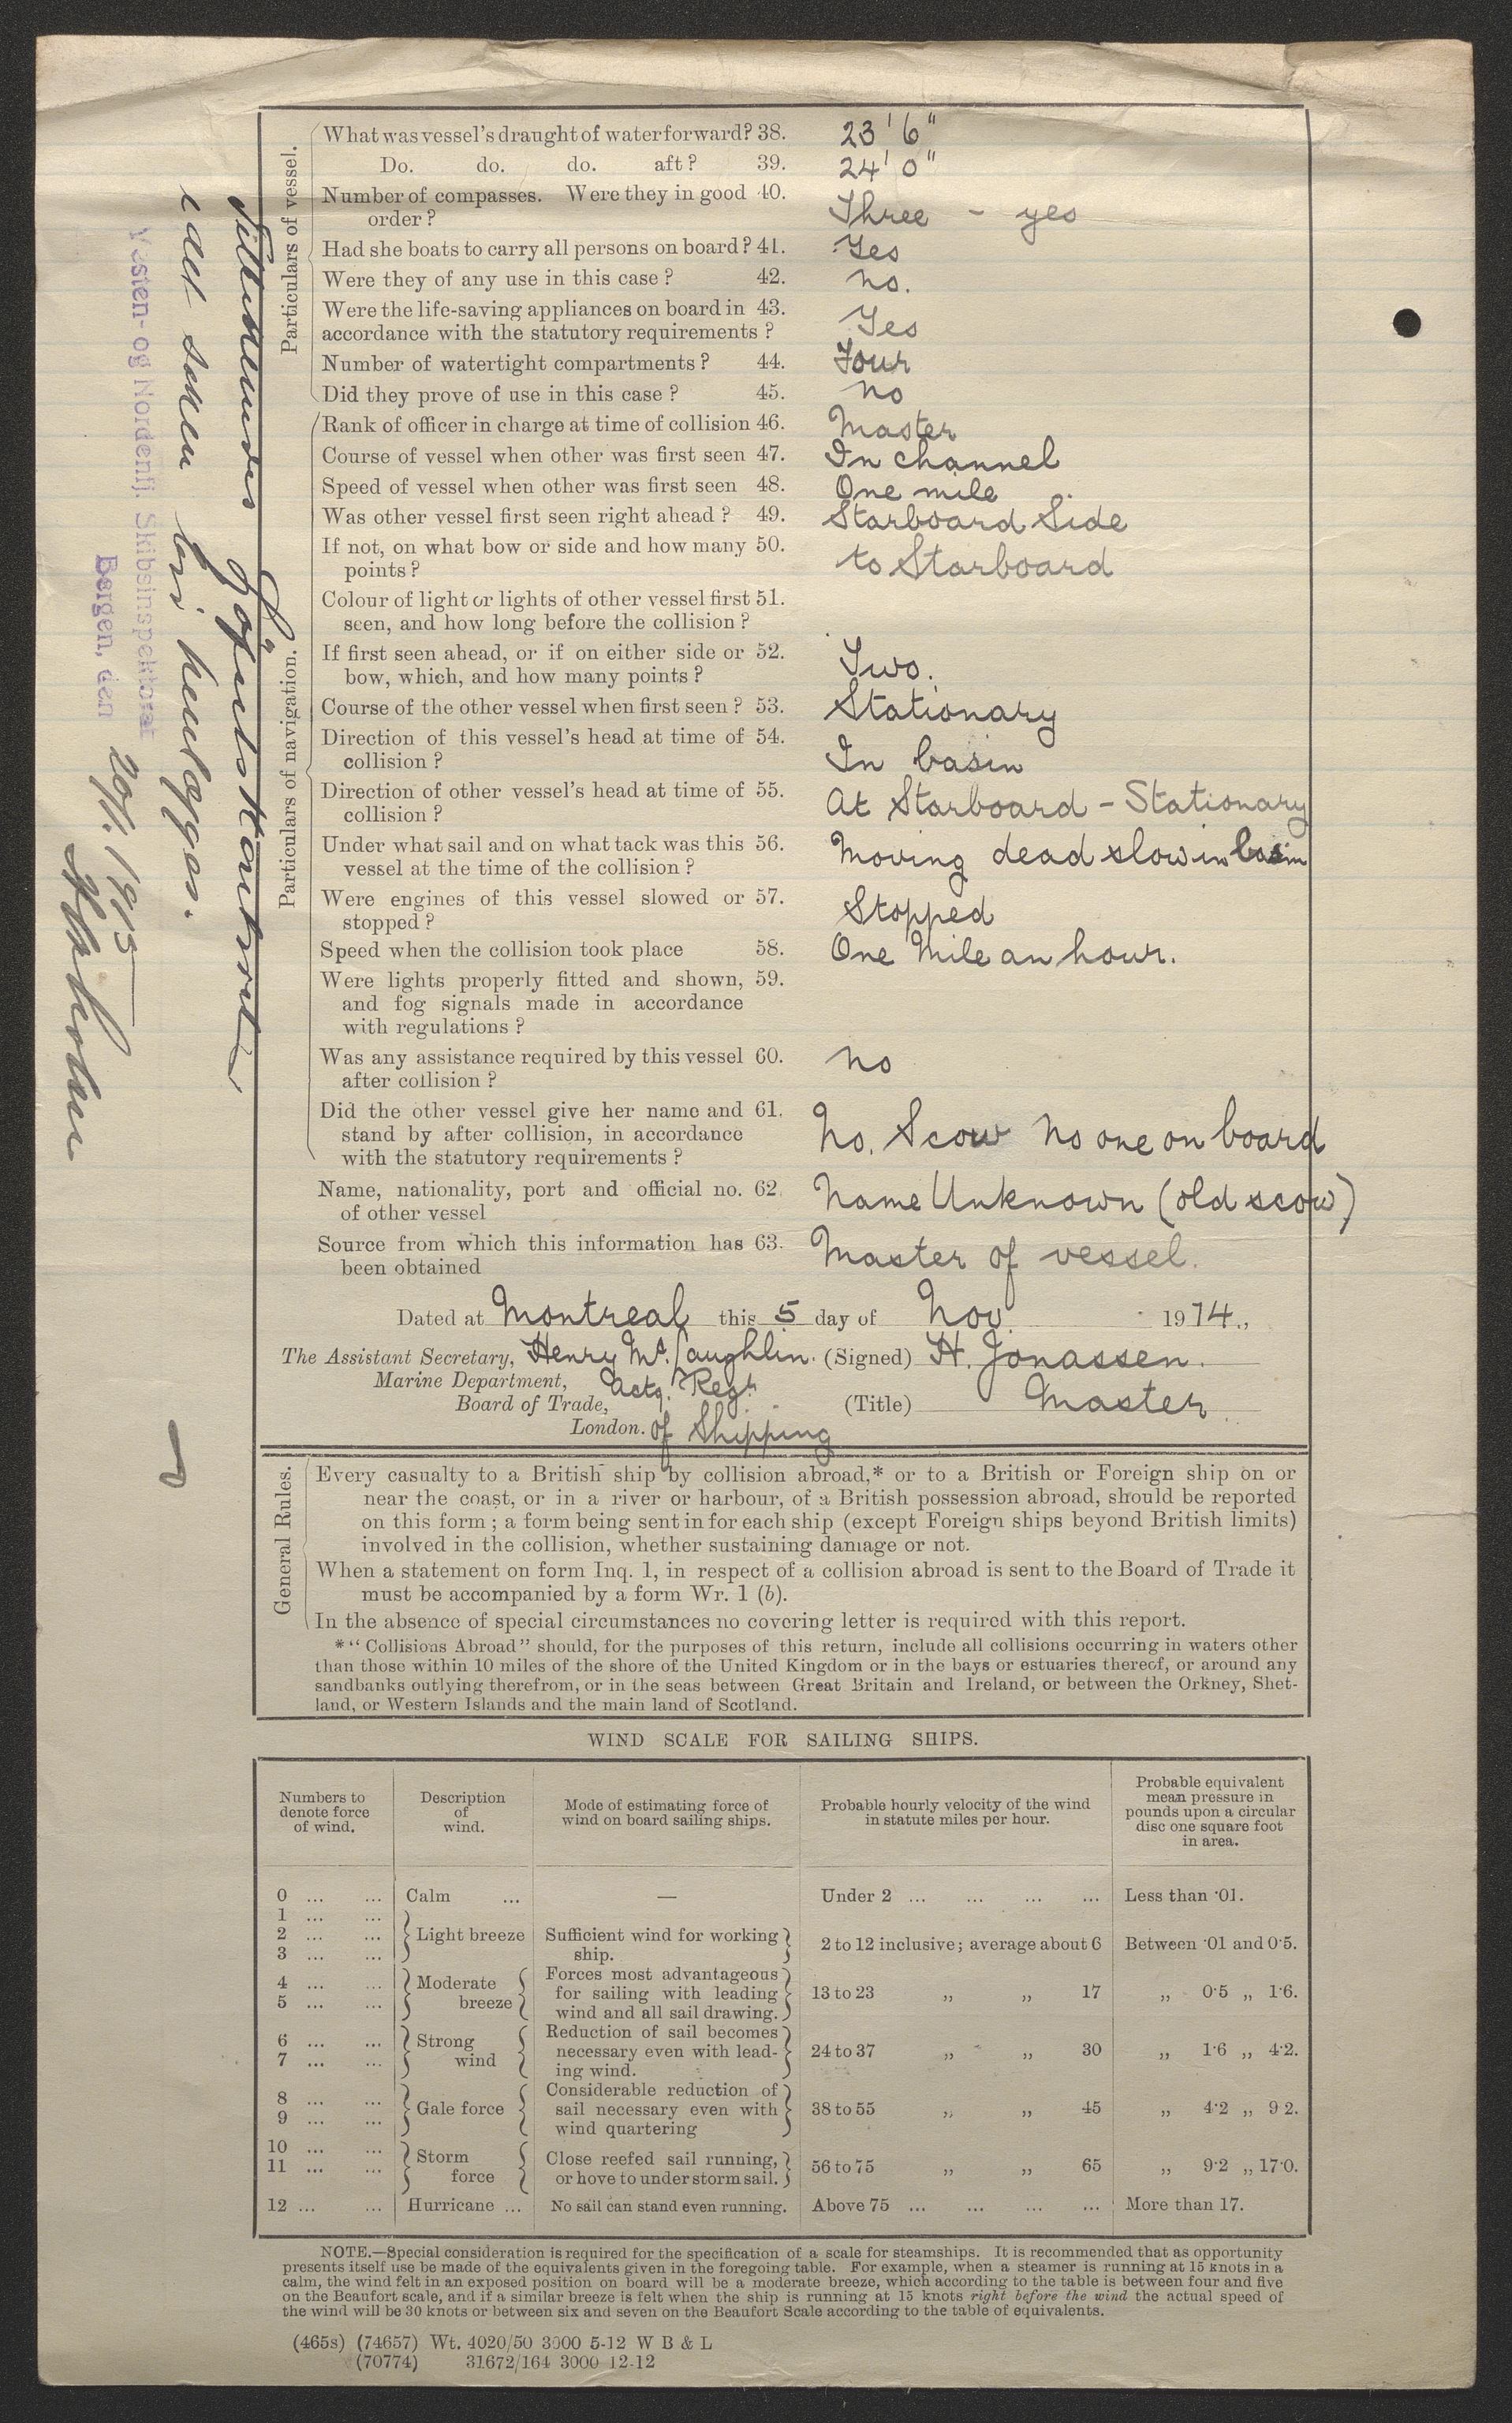 Particulars of vessel.
What was vessel's draught of water forward? 38. 23' 6"
Do. do. do. aft? 39. 24' 0"
Number of compasses. Were they in good 40. Three - yes
order?
Had she boats to carry all persons on board? 41. Yes
Were they of any use in this case? 42. no.
Were the life-saving appliances on board in 43. Yes
accordance with the statutory requirements?
Number of watertight compartments? 44. Four
Did they prove of use in this case? 45. no
Particulars of navigation.
Rank of officer in charge at time of collision 46. Master
Course of vessel when other was first seen 47. In channel
Speed of vessel when other was first seen 48. One mile
Was other vessel first seen right ahead? 49. Starboard Side
If not, on what bow or side and how many 50. to Starboard
points?
Colour of light or lights of other vessel first 51.
seen, and how long before the collision?
If first seen ahead, or if on either side or 52. Two.
bow, which, and how many points?
Course of the other vessel when first seen? 53. Stationary
Direction of this vessel's head at time of 54. In basin
collision?
Direction of other vessel's head at time of 55. At Starboard - Stationary
collision?
Under what sail and on what tack was this 56. Moving dead slow in basin
vessel at the time of the collision?
Were engines of this vessel slowed or 57. Stopped
stopped?
Speed when the collision took place 58. One Mile an hour.
Were lights properly fitted and shown, 59.
and fog signals made in accordance
with regulations?
Was any assistance required by this vessel 60. no
after collision?
Did the other vessel give her name and 61. No. Scow No one on board
stand by after collision, in accordance
with the statutory requirements?
Name, nationality, port and official no. 62. Name Unknown (old scow)
of other vessel
Source from which this information has 63. Master of vessel.
been obtained
Dated at Montreal this 5 day of Nov. 1914.,
The Assistant Secretary, Henry McLaughlin. (Signed) H. Jonassen.
Marine Department, Actg. Regr.
Board of Trade, (Title) Master
London. of Shipping
General Rules.
Every casualty to a British ship by collision abroad,* or to a British or Foreign ship on or
near the coast, or in a river or harbour, of a British possession abroad, should be reported
on this form; a form being sent in for each ship (except Foreign ships beyond British limits)
involved in the collision, whether sustaining damage or not.
When a statement on form Inq. 1, in respect of a collision abroad is sent to the Board of Trade it
must be accompanied by a form Wr. 1 (b).
In the absence of special circumstances no covering letter is required with this report.
*"Collisions Abroad" should, for the purposes of this return, include all collisions occurring in waters other
than those within 10 miles of the shore of the United Kingdom or in the bays or estuaries thereof, or around any
sandbanks outlying therefrom, or in the seas between Great Britain and Ireland, or between the Orkney, Shet-
land, or Western Islands and the main land of Scotland.
WIND SCALE FOR SAILING SHIPS.
Numbers to denote force of wind. Description of wind. Mode of estimating force of wind on board sailing ships. Probable hourly velocity of the wind in statute miles per hour. Probable equivalent mean pressure in pounds upon a circular disc one square foot in area.
0 ... ... Calm ... — Under 2 ... ... ... ... Less than ·01.
1 ... ...
2 ... ... Light breeze Sufficient wind for working 2 to 12 inclusive; average about 6 Between ·01 and 0·5.
3 ... ... ship.
4 ... ... Moderate Forces most advantageous
5 ... ... breeze for sailing with leading 13 to 23 „ „ 17 „ 0·5 „ 1·6.
wind and all sail drawing.
6 ... ... Strong Reduction of sail becomes
7 ... ... wind necessary even with lead- 24 to 37 „ „ 30 „ 1·6 „ 4·2.
ing wind.
8 ... ... Gale force Considerable reduction of
9 ... ... sail necessary even with 38 to 55 „ „ 45 „ 4·2 „ 9 2.
wind quartering
10 ... ... Storm Close reefed sail running,
11 ... ... force or hove to under storm sail. 56 to 75 „ „ 65 „ 9·2 „ 17·0.
12 ... ... Hurricane ... No sail can stand even running. Above 75 ... ... ... ... More than 17.
NOTE.—Special consideration is required for the specification of a scale for steamships. It is recommended that as opportunity
presents itself use be made of the equivalents given in the foregoing table. For example, when a steamer is running at 15 knots in a
calm, the wind felt in an exposed position on board will be a moderate breeze, which according to the table is between four and five
on the Beaufort scale, and if a similar breeze is felt when the ship is running at 15 knots right before the wind the actual speed of
the wind will be 30 knots or between six and seven on the Beaufort Scale according to the table of equivalents.
(465s) (74657) Wt. 4020/50 3000 5-12 W B & L
(70774) 31672/164 3000 12-12
Tilstilles Sjöfartskontoret
idet saken bri henlagges.
Vesten- og Nordenfj. Skibsinspektorat
Bergen, den 20/1. 1915